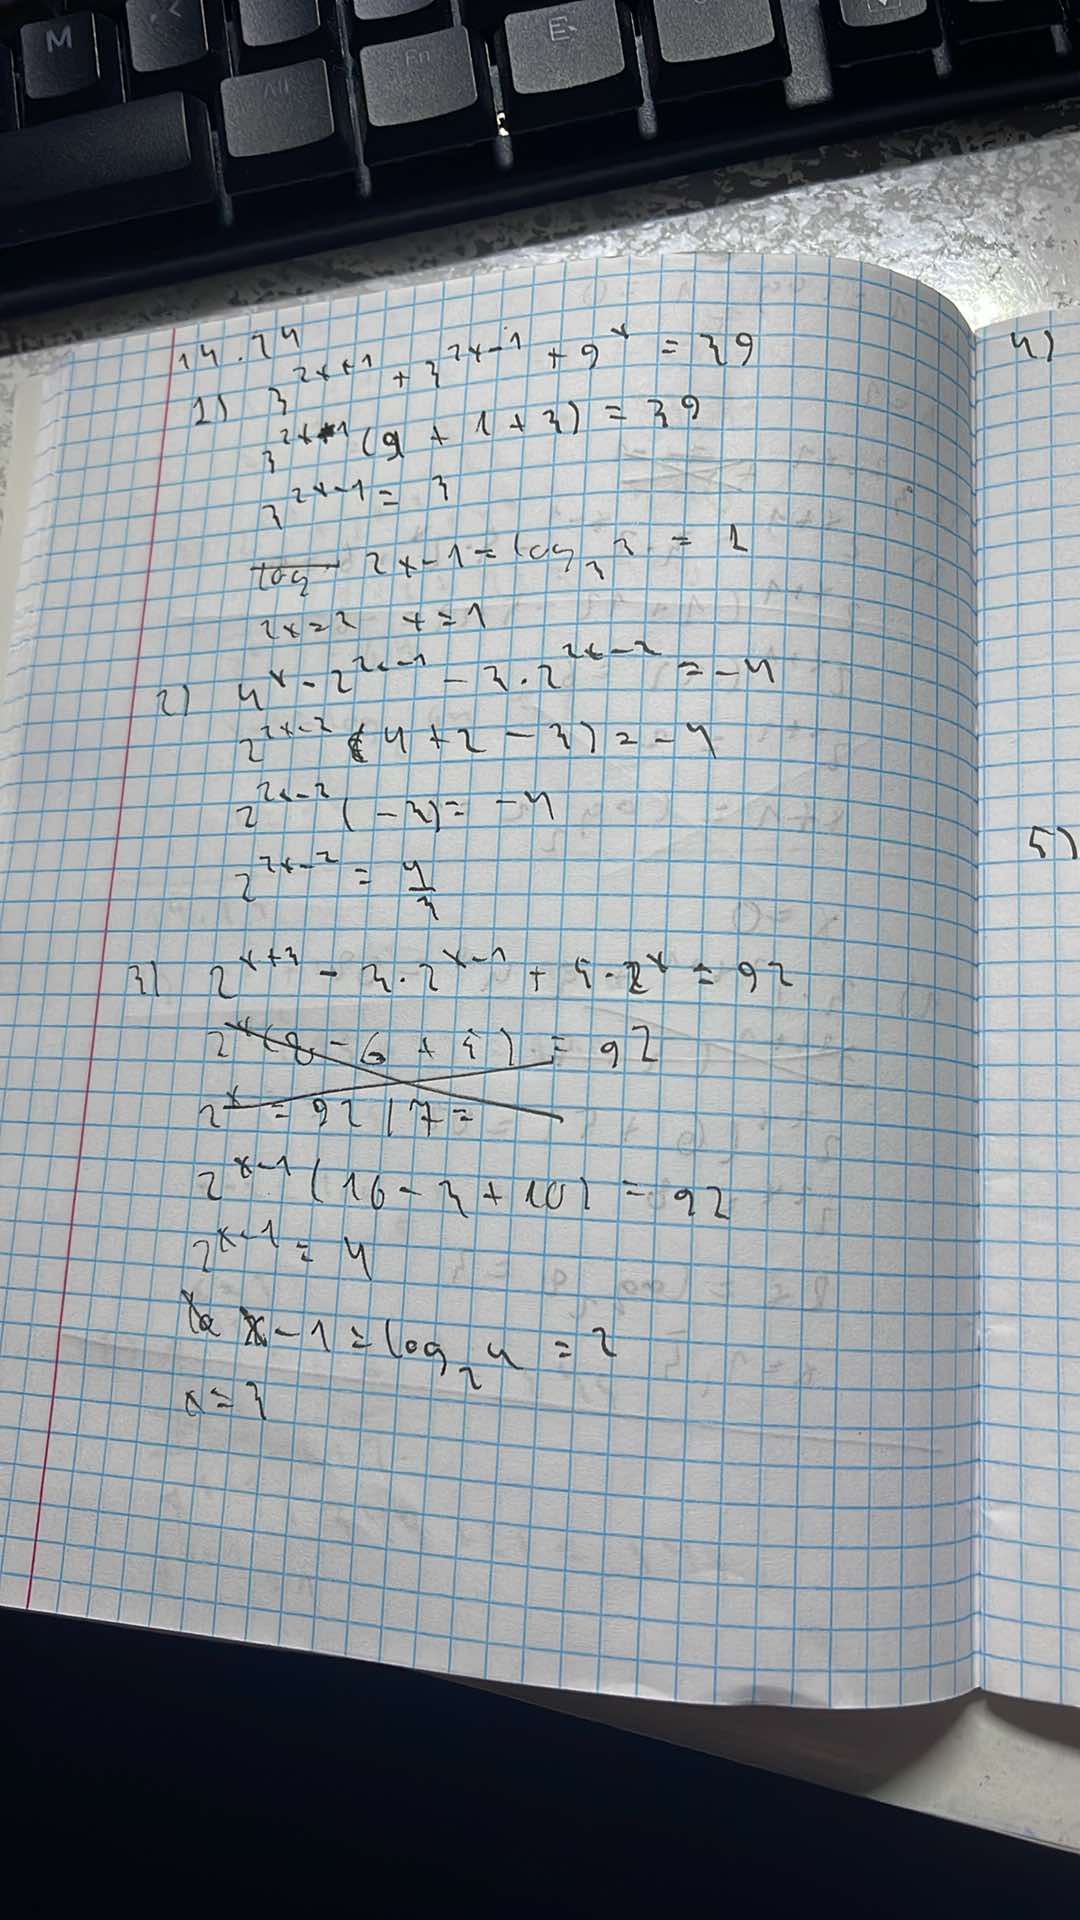 M << Fn E
Alt
14.24
1) 3^{2x+1} + 3^{2x-1} + 9^x = 39
3^{2x-1} (9 + 1 + 3) = 39
3^{2x-1} = 3
log 2x-1 = log_3 3 = 1
2x=2 x=1
2) 4^x - 2^{2x-1} - 3·2^{2x-2} = -4
2^{2x-2} (4 + 2 - 3) = -4
2^{2x-2} (-3) = -4
2^{2x-2} = 4/3
3) 2^{x+3} - 3·2^{x-1} + 5·2^x = 92
2^x (8 - 6 + 5) = 92
2^x = 92 / 7 =
2^{x-1} (16 - 3 + 10) = 92
2^{x-1} = 4
x-1 = log_2 4 = 2
x = 3
4)
5)